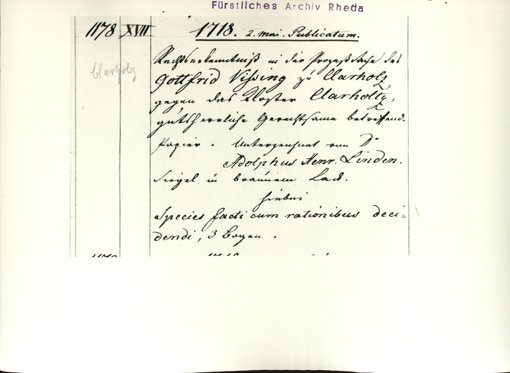 Fürstliches Archiv Rheda
1178 XVIII 1718. 2. mai. Publicatum.
Clarholz
Rechtserkenntniß in der Prozeßsache des
Gottfrid Vißing zu Clarholz
gegen das Kloster Clarholtz,
gutsherrliche Gerechtsame betreffend.
Papier. Unterzeichnet von Dr
Adolphus Henr. Linden.
Siegel in braunem Lack.
hierbei
Species facti cum rationibus deci-
dendi, 3 Bogen.